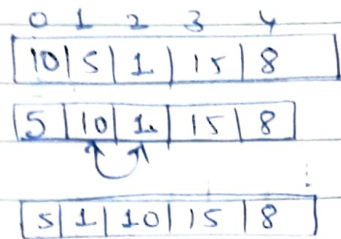 0 1 2 3 4
10 | 5 | 1 | 15 | 8
5 | 10 | 1 | 15 | 8
5 | 1 | 10 | 15 | 8